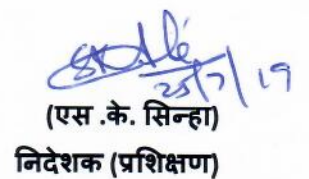 25/7/19
(एस .के. सिन्हा)
निदेशक (प्रशिक्षण)